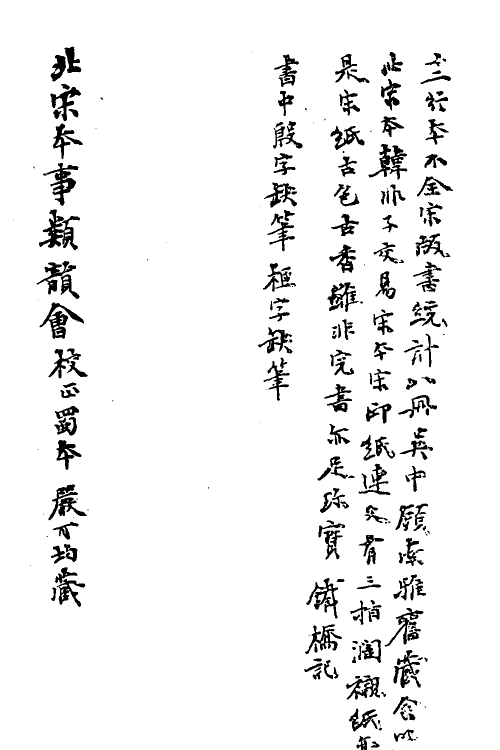 十三行本不全宋版書統計八冊吳中顧澗雅舊藏今以
北宋本韓非子交易宋本宋印紙連史有三指濶襯紙亦
是宋紙古色古香雖非完書亦足珍寶 鐵橋記
書中殷字缺筆桓字缺筆
北宋本事類韻會校正蜀本 嚴可均藏